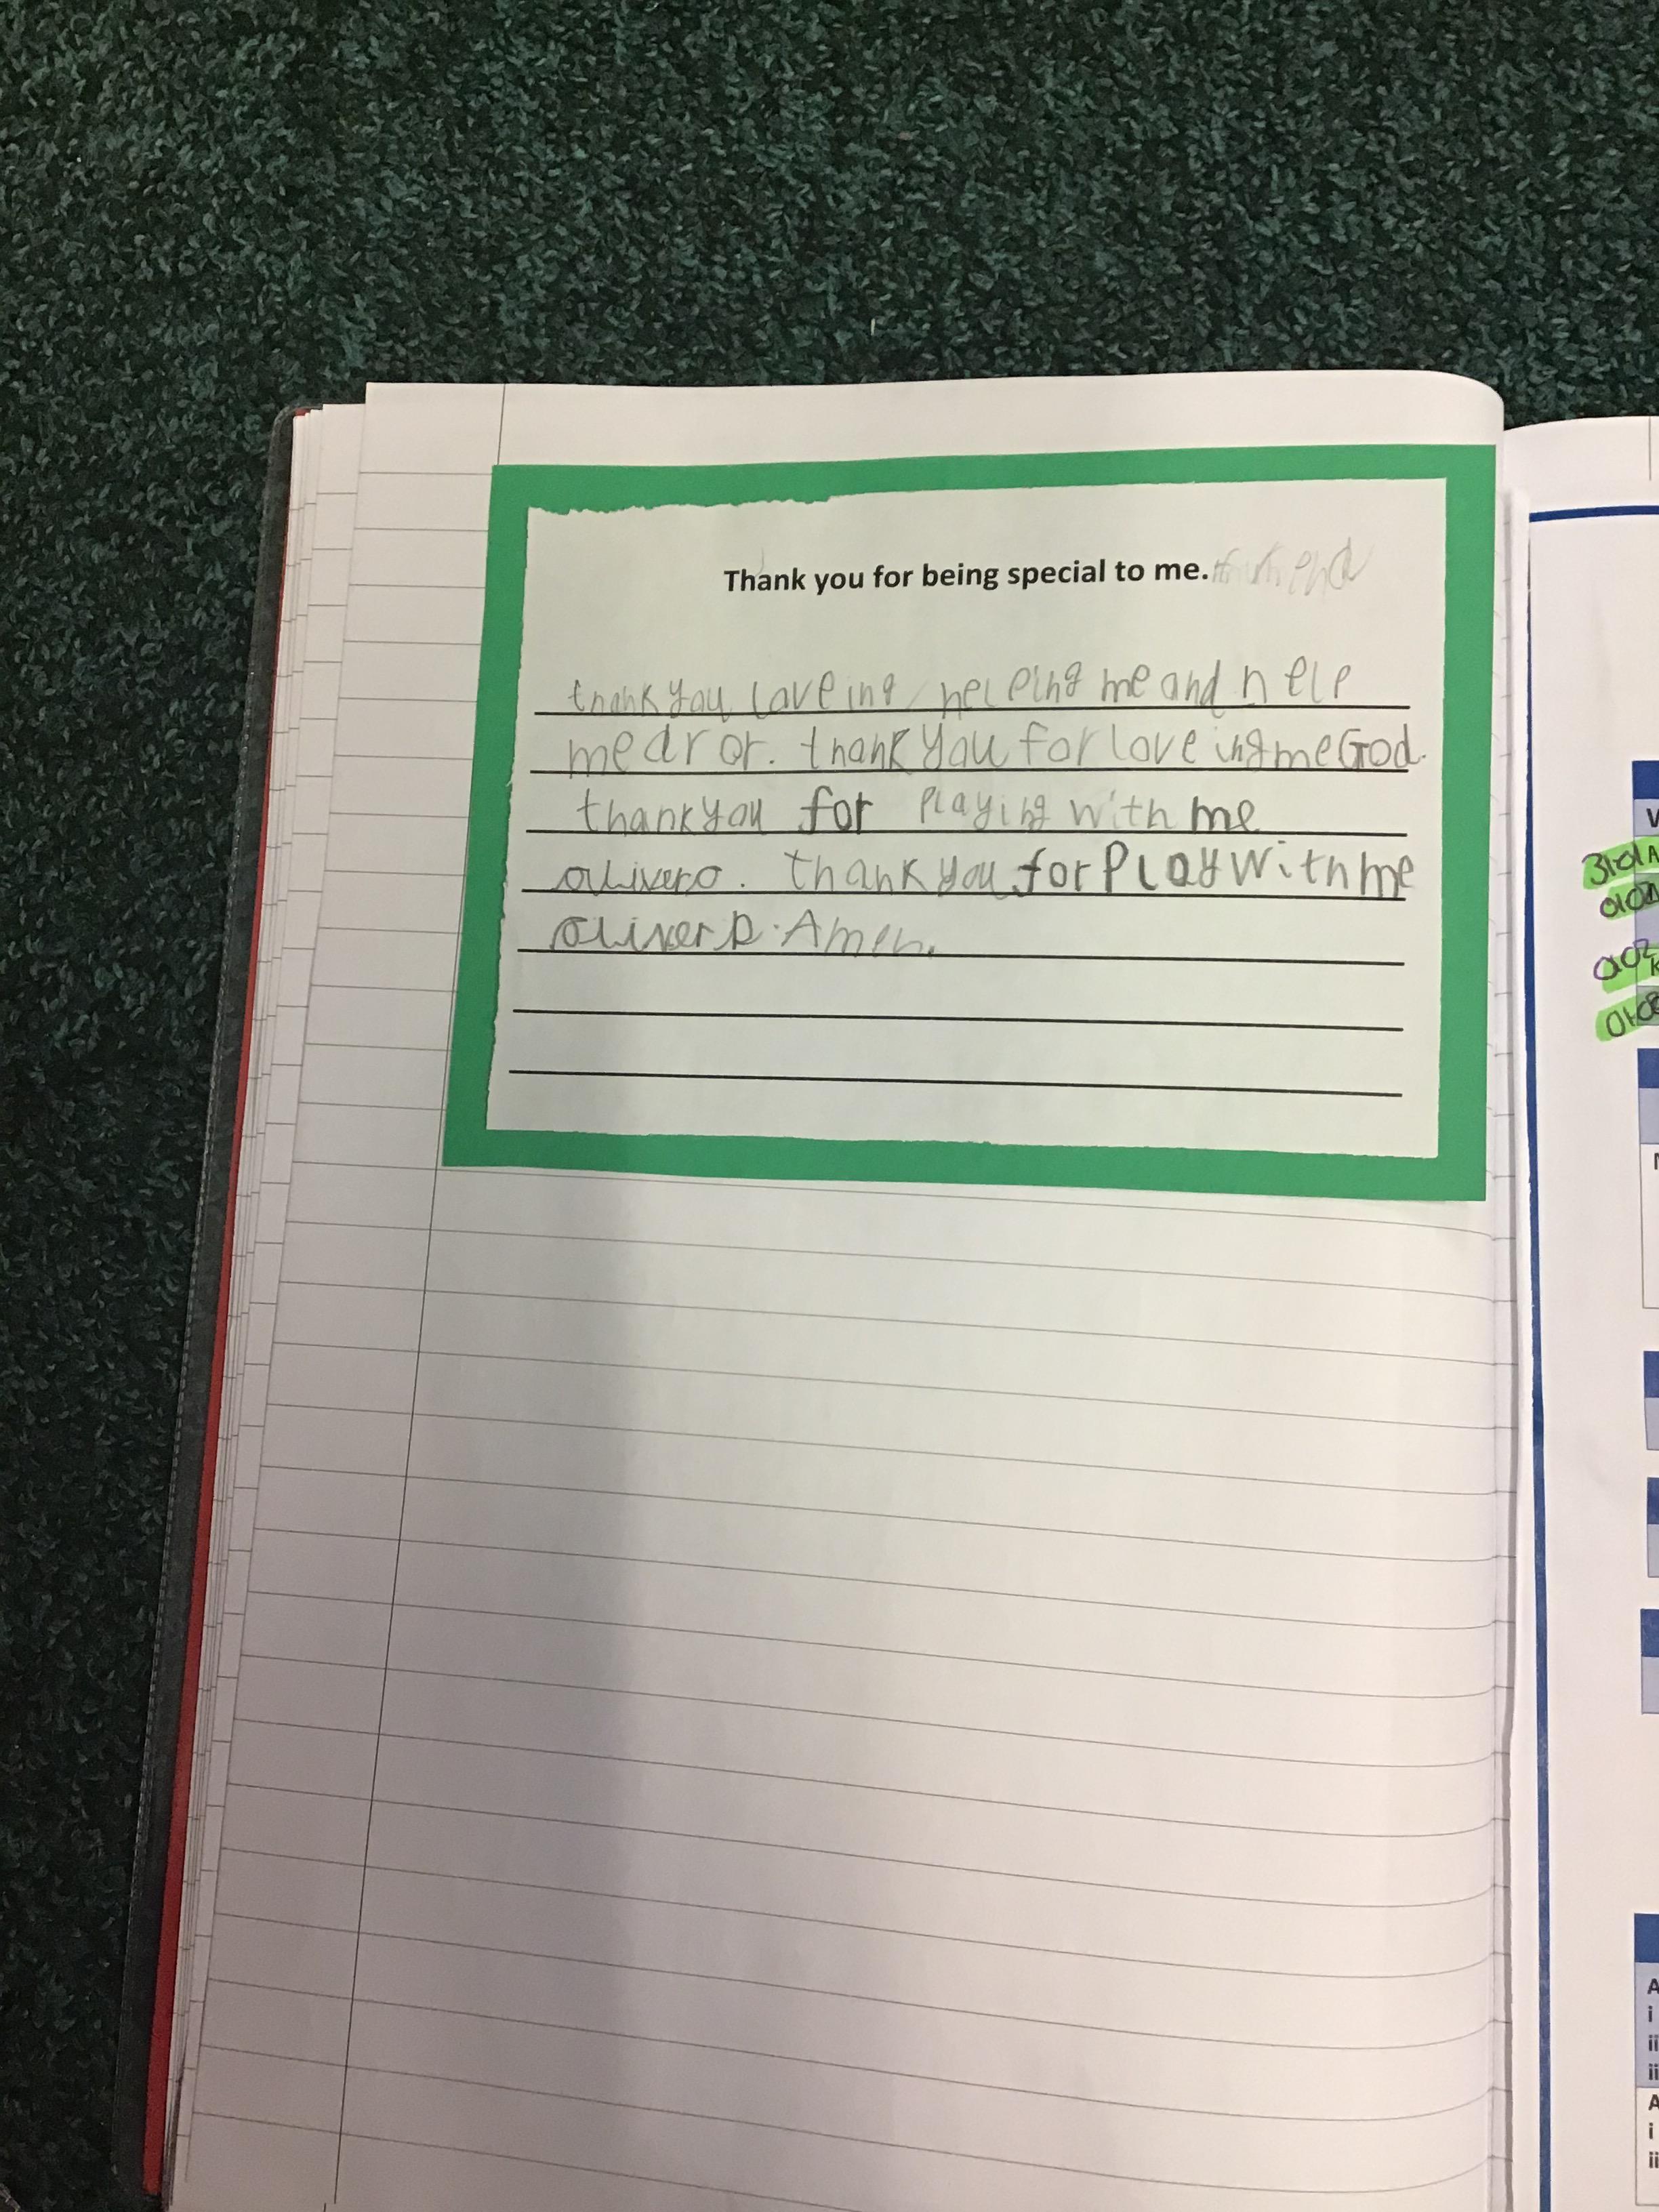 Thank you for being special to me.
thank you loveing helping me and help
me dror. thank you for loveing me God.
thank you for playing with me
olivero. thank you for Play with me
oliver D. Amen.
V
A
A
i
ii
ii
A
i
ii